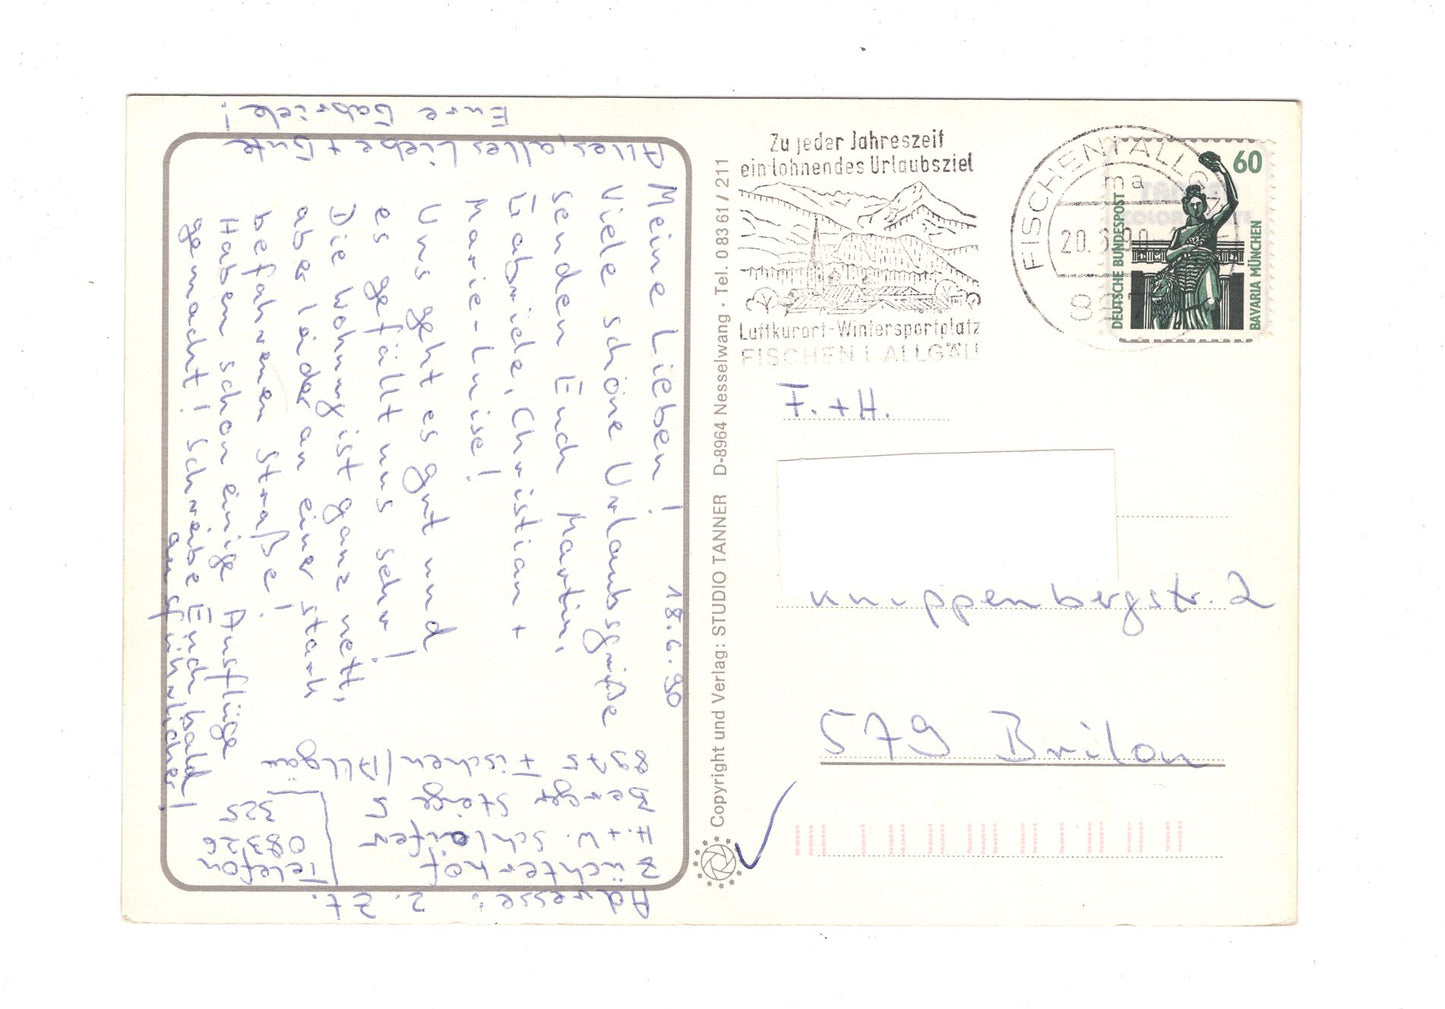 18.6.90
Meine Lieben!
Viele schöne Urlaubsgrüße
senden Euch Martin,
Gabriele, Christian +
Marie-Luise!
Uns geht es gut und
es gefällt uns sehr!
Die Wohnung ist ganz nett,
aber leider an einer stark
befahrenen Straße!
Haben schon einige Ausflüge
gemacht! Schreibe Euch bald
ausführlicher!
Alles, alles Liebe + Gute
Eure Gabriele!
Adresse: z. Zt.
Züchterhof
H. + W. Schleifer
Berger Steige 5
8975 Fischen/Allgäu
Telefon
08326
325
Copyright und Verlag: STUDIO TANNER D-8964 Nesselwang · Tel. 0 83 61 / 211
Zu jeder Jahreszeit
ein lohnendes Urlaubsziel
Luftkurort-Wintersportplatz
FISCHEN I. ALLGÄU
FISCHEN I ALLG
ma
20.6.90
DEUTSCHE BUNDESPOST
60
BAVARIA MÜNCHEN
F. + H.
Knippenbergstr. 2
579 Brilon